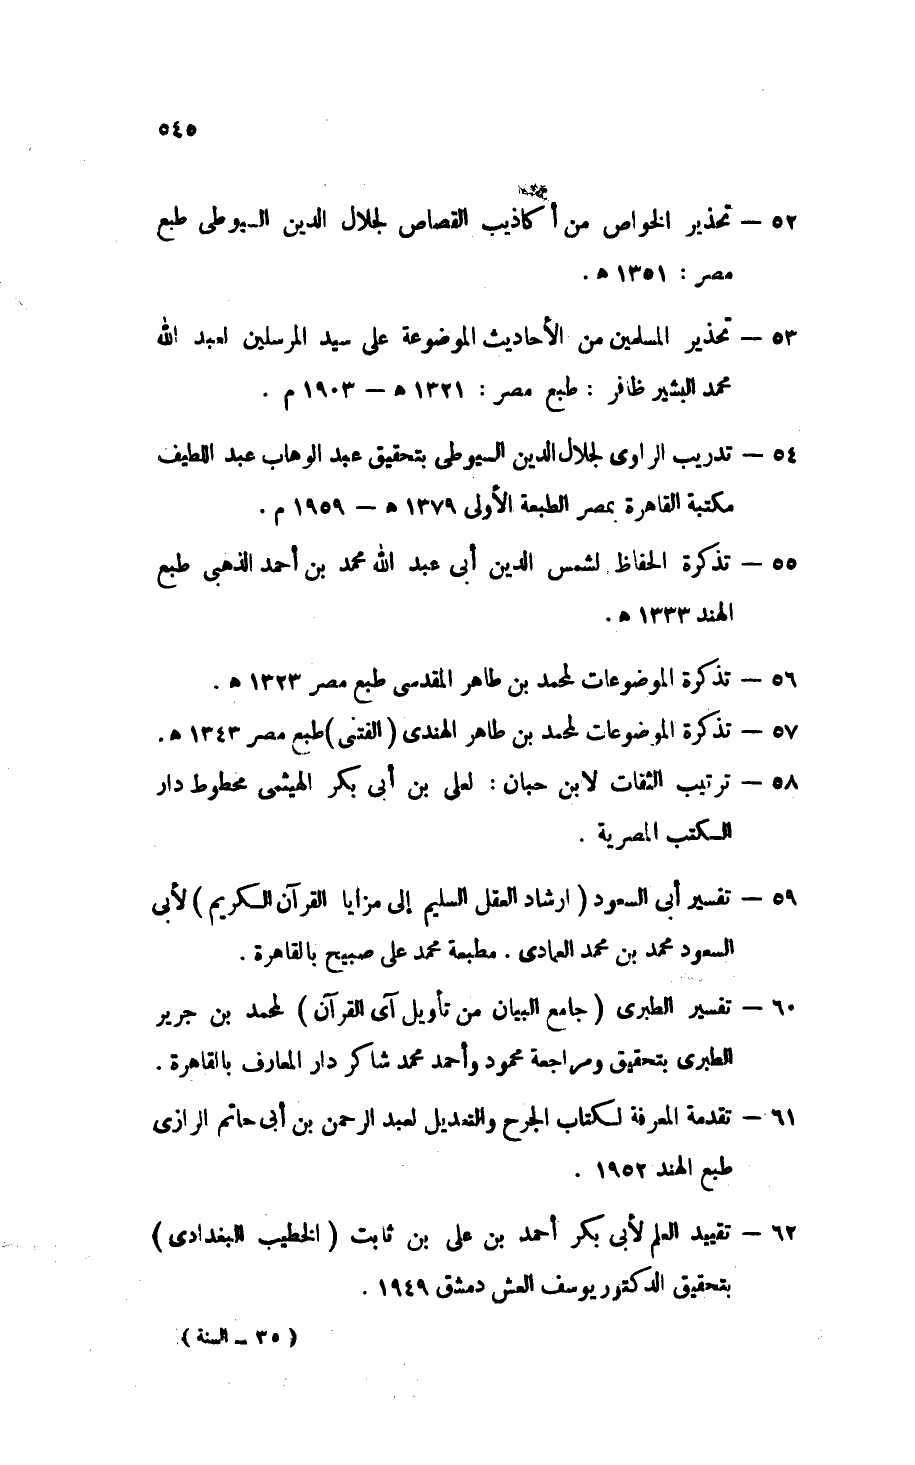 ٥٤٥
٥٢ – تحذير الخواص من أكاذيب القصاص لجلال الدين السيوطى طبع
مصر : ١٣٥١ ه .
٥٣ – تحذير المسلمين من الأحاديث الموضوعة على سيد المرسلين لعبد الله
محمد البشير ظافر : طبع مصر : ١٣٢١ ه – ١٩٠٣ م .
٥٤ – تدريب الراوى لجلال الدين السيوطى بتحقيق عبد الوهاب عبد اللطيف
مكتبة القاهرة بمصر الطبعة الأولى ١٣٧٩ ه – ١٩٥٩ م .
٥٥ – تذكرة الحفاظ لشمس الدين أبى عبد الله محمد بن أحمد الذهبى طبع
الهند ١٣٣٣ ه .
٥٦ – تذكرة الموضوعات لمحمد بن طاهر المقدسى طبع مصر ١٣٢٣ ه .
٥٧ – تذكرة الموضوعات لمحمد بن طاهر الهندى ( الفتنى ) طبع مصر ١٣٤٣ ه .
٥٨ – ترتيب الثقات لابن حبان : لعلى بن أبى بكر الهيثمى مخطوط دار
الكتب المصرية .
٥٩ – تفسير أبى السعود ( ارشاد العقل السليم إلى مزايا القرآن الكريم ) لأبى
السعود محمد بن محمد العمادى . مطبعة محمد على صبيح بالقاهرة .
٦٠ – تفسير الطبرى ( جامع البيان من تأويل آى القرآن ) لمحمد بن جرير
الطبرى بتحقيق ومراجعة محمود وأحمد محمد شاكر دار المعارف بالقاهرة .
٦١ – تقدمة المعرفة لكتاب الجرح والتعديل لعبد الرحمن بن أبى حاتم الرازى
طبع الهند ١٩٥٢ .
٦٢ – تقييد العلم لأبى بكر أحمد بن على بن ثابت ( الخطيب البغدادى )
بتحقيق الدكتور يوسف العش دمشق ١٩٤٩ .
( ٣٥ – السنة )